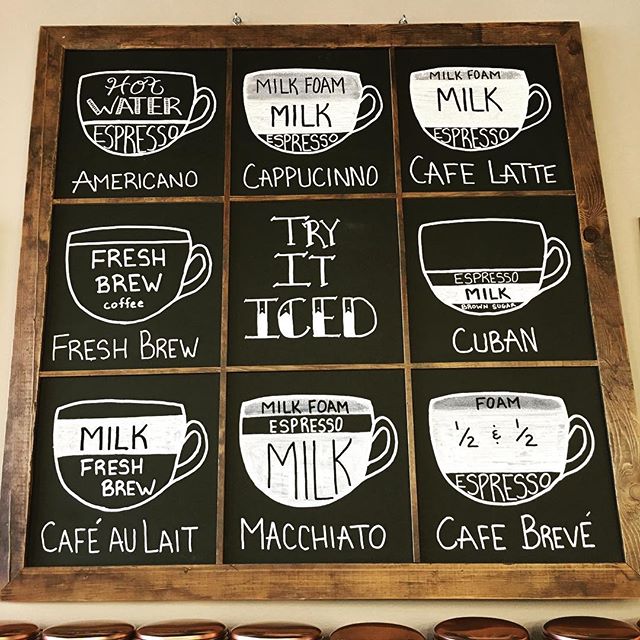 Hot
WATER
ESPRESSO
AMERICANO
MILK FOAM
MILK
ESPRESSO
CAPPUCINNO
MILK FOAM
MILK
ESPRESSO
CAFE LATTE
FRESH
BREW
coffee
FRESH BREW
TRY
IT
ICED
ESPRESSO
MILK
BROWN SUGAR
CUBAN
MILK
FRESH
BREW
CAFÉ AU LAIT
MILK FOAM
ESPRESSO
MILK
MACCHIATO
FOAM
½ & ½
ESPRESSO
CAFE BREVÉ